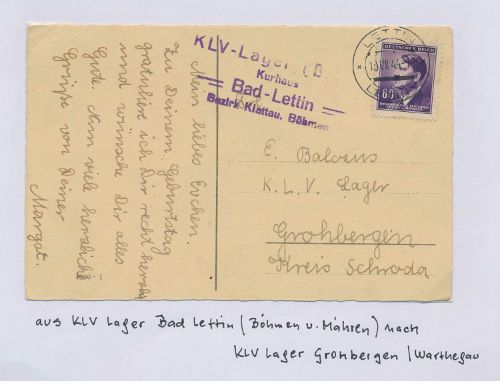 Mein liebes Evchen.
Zu Deinem Geburtstag
gratuliere ich Dir recht herzlich
und wünsche Dir alles
Gute. Nun viele herzliche
Grüsse von Deiner
Margot.
KLV-Lager (B
Kurhaus
Bad-Lettin
Bezirk Klattau, Böhmen
LETTIN
DEUTSCHES REICH
60
E. Balvans
K. L. V. Lager
Grohbergen
Kreis Schroda
aus KLV Lager Bad Lettin (Böhmen u. Mähren) nach
KLV Lager Gronbergen / Warthegau